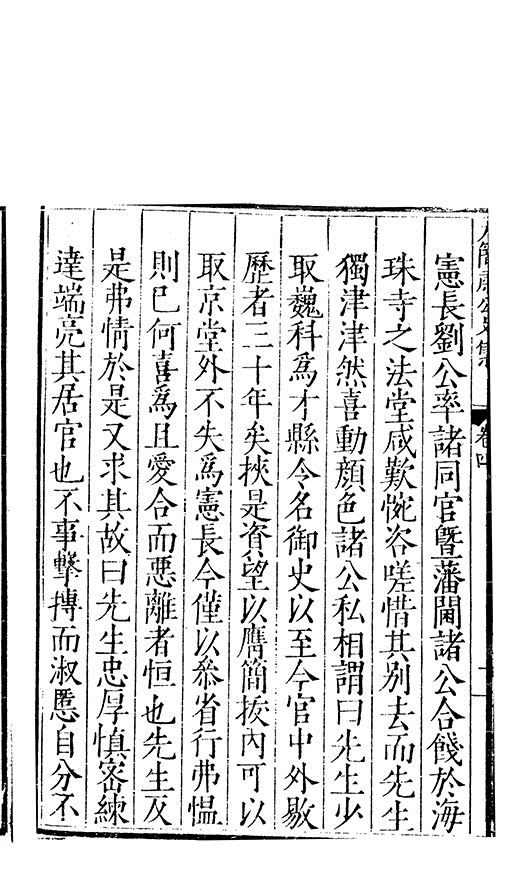 憲長劉公率諸同官曁藩閫諸公合餞於海
珠寺之法堂咸歎惋咨嗟惜其别去而先生
獨津津然喜動顔色諸公私相謂曰先生少
取巍科爲才縣令名御史以至今官中外敭
歷者三十年矣挾是資望以膺簡拔內可以
取京堂外不失爲憲長今僅以叅省行弗愠
則已何喜爲且愛合而惡離者恒也先生反
是弗情於是又求其故曰先生忠厚愼密練
達端亮其居官也不事擊摶而淑慝自分不
卷四